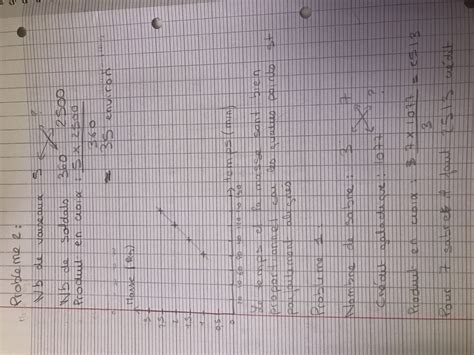 Problème 2:
Nb de vaisseaux 5 ?
Nb de soldats 360 2500
Produit en croix : 5 x 2500
360
≈ 35 environ
Masse (kg)
3
2,5
2
1
0,5
0
temps (min)
Le temps et la masse sont bien
proportionnel car les points
parfaitement alignés
Problème 1
Nombre de sabre : 3 7
Crédit galactique : 1077 ?
Produit en croix 7 x 1077 = 2513
3
Pour 7 sabres il faut 2513 crédit